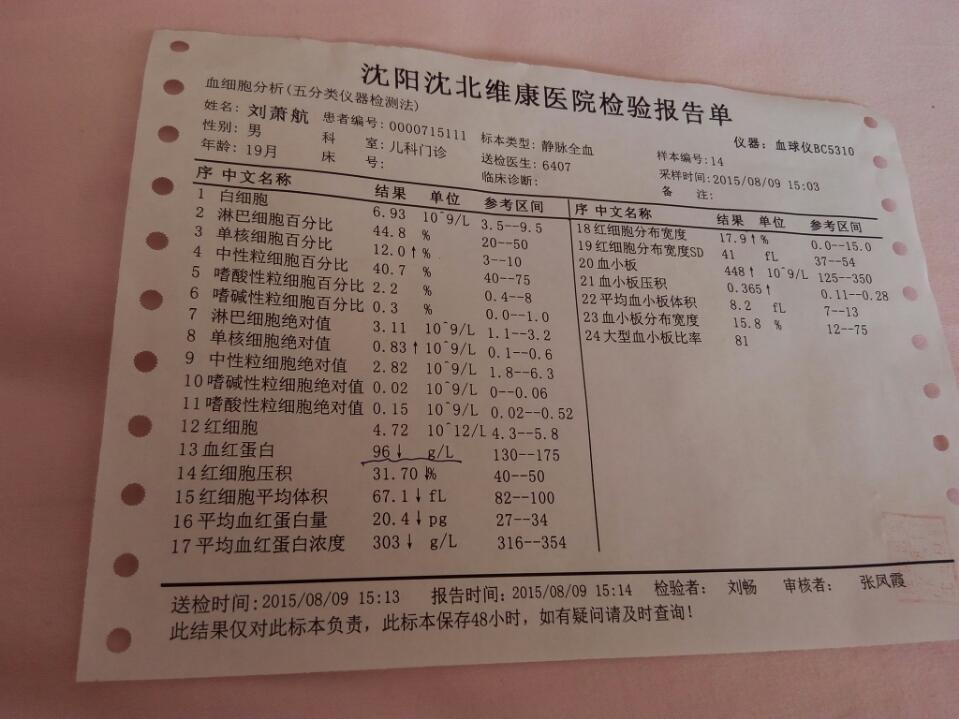 沈阳沈北维康医院检验报告单
血细胞分析(五分类仪器检测法)
仪器: 血球仪BC5310
姓名: 刘萧航 患者编号: 0000715111 标本类型: 静脉全血 样本编号:14
性别: 男 科 室: 儿科门诊 送检医生: 6407 采样时间:2015/08/09 15:03
年龄: 19月 床 号: 临床诊断: 备 注:
序 中文名称 结果 单位 参考区间
1 白细胞 6.93 10^9/L 3.5--9.5
2 淋巴细胞百分比 44.8 % 20--50
3 单核细胞百分比 12.0↑% 3--10
4 中性粒细胞百分比 40.7 % 40--75
5 嗜酸性粒细胞百分比 2.2 % 0.4--8
6 嗜碱性粒细胞百分比 0.3 % 0.0--1.0
7 淋巴细胞绝对值 3.11 10^9/L 1.1--3.2
8 单核细胞绝对值 0.83↑10^9/L 0.1--0.6
9 中性粒细胞绝对值 2.82 10^9/L 1.8--6.3
10 嗜碱性粒细胞绝对值 0.02 10^9/L 0--0.06
11 嗜酸性粒细胞绝对值 0.15 10^9/L 0.02--0.52
12 红细胞 4.72 10^12/L 4.3--5.8
13 血红蛋白 96↓ g/L 130--175
14 红细胞压积 31.70↓% 40--50
15 红细胞平均体积 67.1↓fL 82--100
16 平均血红蛋白量 20.4↓pg 27--34
17 平均血红蛋白浓度 303↓ g/L 316--354
序 中文名称 结果 单位 参考区间
18 红细胞分布宽度 17.9↑% 0.0--15.0
19 红细胞分布宽度SD 41 fL 37--54
20 血小板 448↑ 10^9/L 125--350
21 血小板压积 0.365↑ 0.11--0.28
22 平均血小板体积 8.2 fL 7--13
23 血小板分布宽度 15.8 % 12--75
24 大型血小板比率 81
送检时间:2015/08/09 15:13 报告时间:2015/08/09 15:14 检验者: 刘畅 审核者: 张凤霞
此结果仅对此标本负责，此标本保存48小时，如有疑问请及时查询!